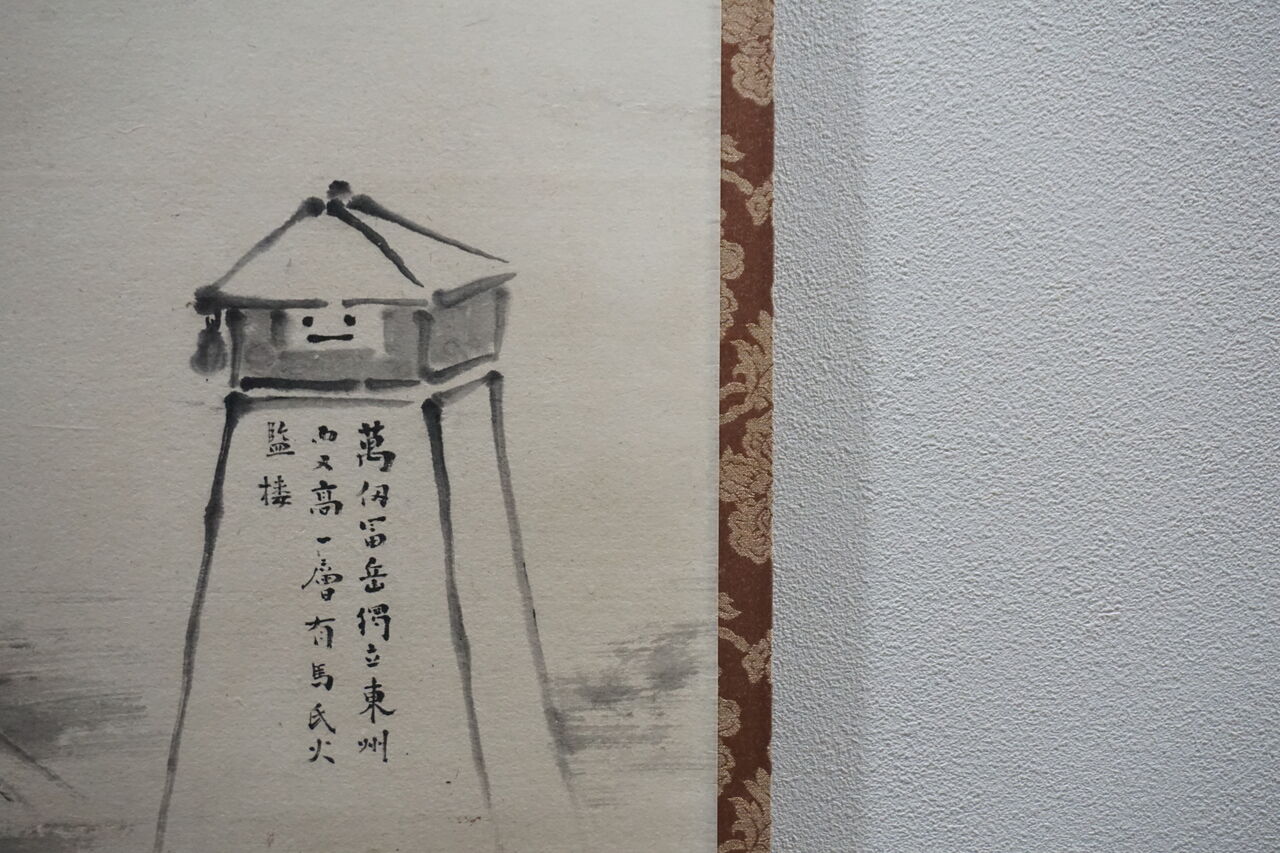 萬仞冨岳獨立東州
而又高一層有馬氏火
監楼